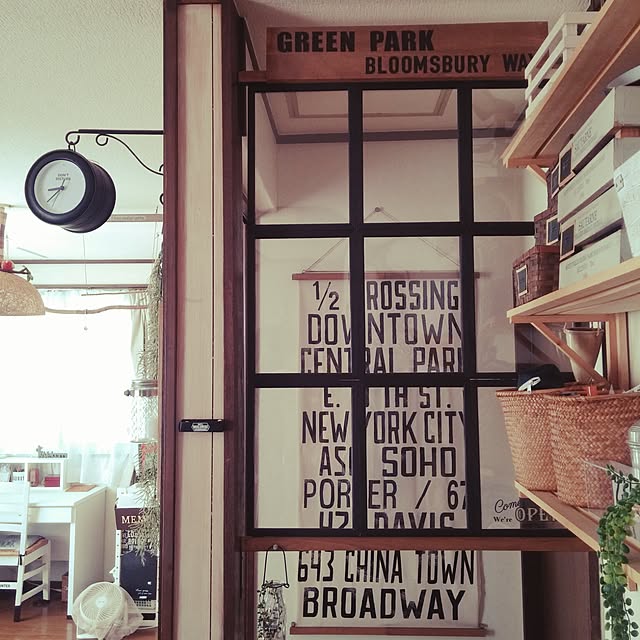 GREEN PARK
BLOOMSBURY WAY
DON'T
1/2 ROSSING
DOWNTOWN
CENTRAL PARK
E. TH ST.
NEW YORK CITY
SOHO
PORTER / 67
DAVIS
643 CHINA TOWN
BROADWAY
Com
We're OPEN
MEN